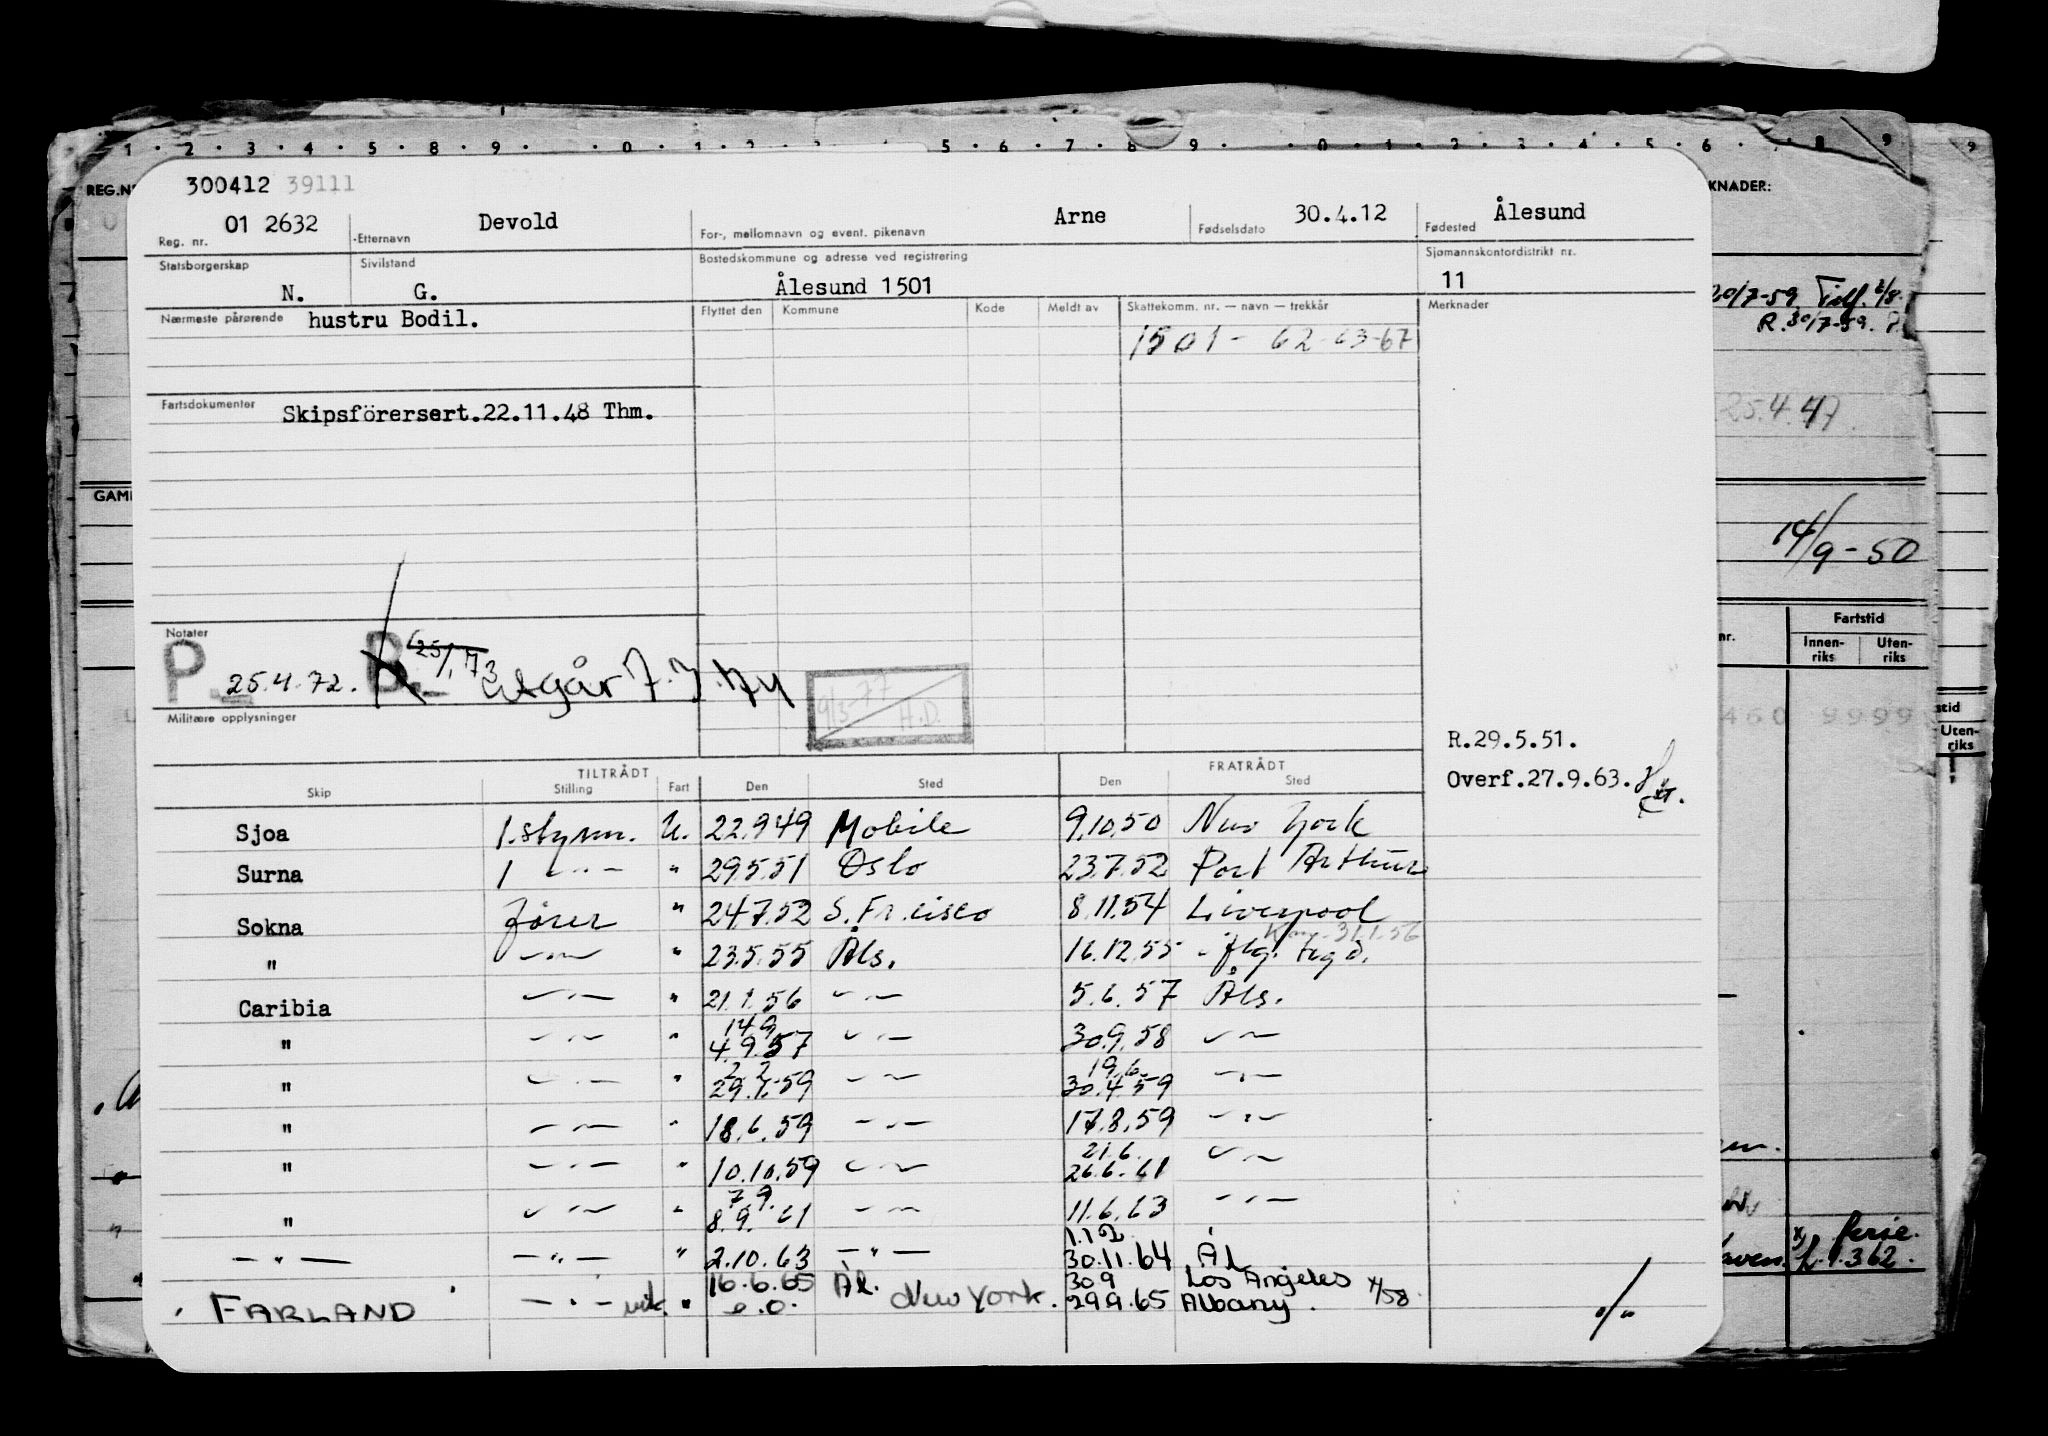 1 · 2 · 3 · 4 · 5 · 8 · 9 · 0 · 1 · 2 5 · 6 · 7 · 8 9 · 0 · 1 · 2 · 3 · 4 5 · 6 · 8 9 9
REG.N KNADER:
300412 39111
Reg. nr. 01 2632 Etternavn Devold For-, mellomnavn og event. pikenavn Arne Fødselsdato 30.4.12 Fødested Ålesund
Statsborgerskap N. Sivilstand G. Bostedskommune og adresse ved registrering Ålesund 1501 Sjømannskontordistrikt nr. 11
Nærmeste pårørende hustru Bodil. Flyttet den Kommune Kode Meldt av Skattekomm. nr. — navn — trekkår Merknader
1501 - 62-63-67
20/7-59
R. 30/7-59.
Fartsdokumenter Skipsförersert.22.11.48 Thm.
25.4.47
GAM
14/9-50
Notater
P. 25.4.72. B. 25/1.73 utgår 7.3.74
9/3-77 H.D.
Militære opplysninger
Fartstid
nr. Innen-riks Uten-riks
460 9999
stid
Uten-riks
R.29.5.51.
Overf.27.9.63.
TILTRÅDT FRATRÅDT
Skip Stilling Fart Den Sted Den Sted
Sjoa 1.styrm. U. 22.9.49 Mobile 9.10.50 New York
Surna 1 — " — " 29.5.51 Oslo 23.7.52 Port Arthur
Sokna fører " 24.7.52 S. Fr.cisco 8.11.54 Liverpool
31.1.56
" — " — " 23.5.55 Åls. 16.12.55
Caribia — " — " 21.1.56 — " — 5.6.57 Åls.
14.9
" — " — " 4.9.57 — " — 30.9.58 — " —
2.2 19.6.
" — " — " 29.1.59 — " — 30.4.59 — " —
" — " — " 18.6.59 — " — 17.8.59 — " —
21.6.
" — " — " 10.10.59 — " — 26.6.61 — " —
7.9.
" — " — " 8.9.61 — " — 11.6.63 — " —
1.12
— " — — " — " 2.10.63 — " — 30.11.64 Ål
16.6.65 Ål. 30.9 Los Angeles
FARLAND — " — vik. " e.o. New York. 29.9.65 Albany. 4/58
·/·
ferie.
f. 1.362.